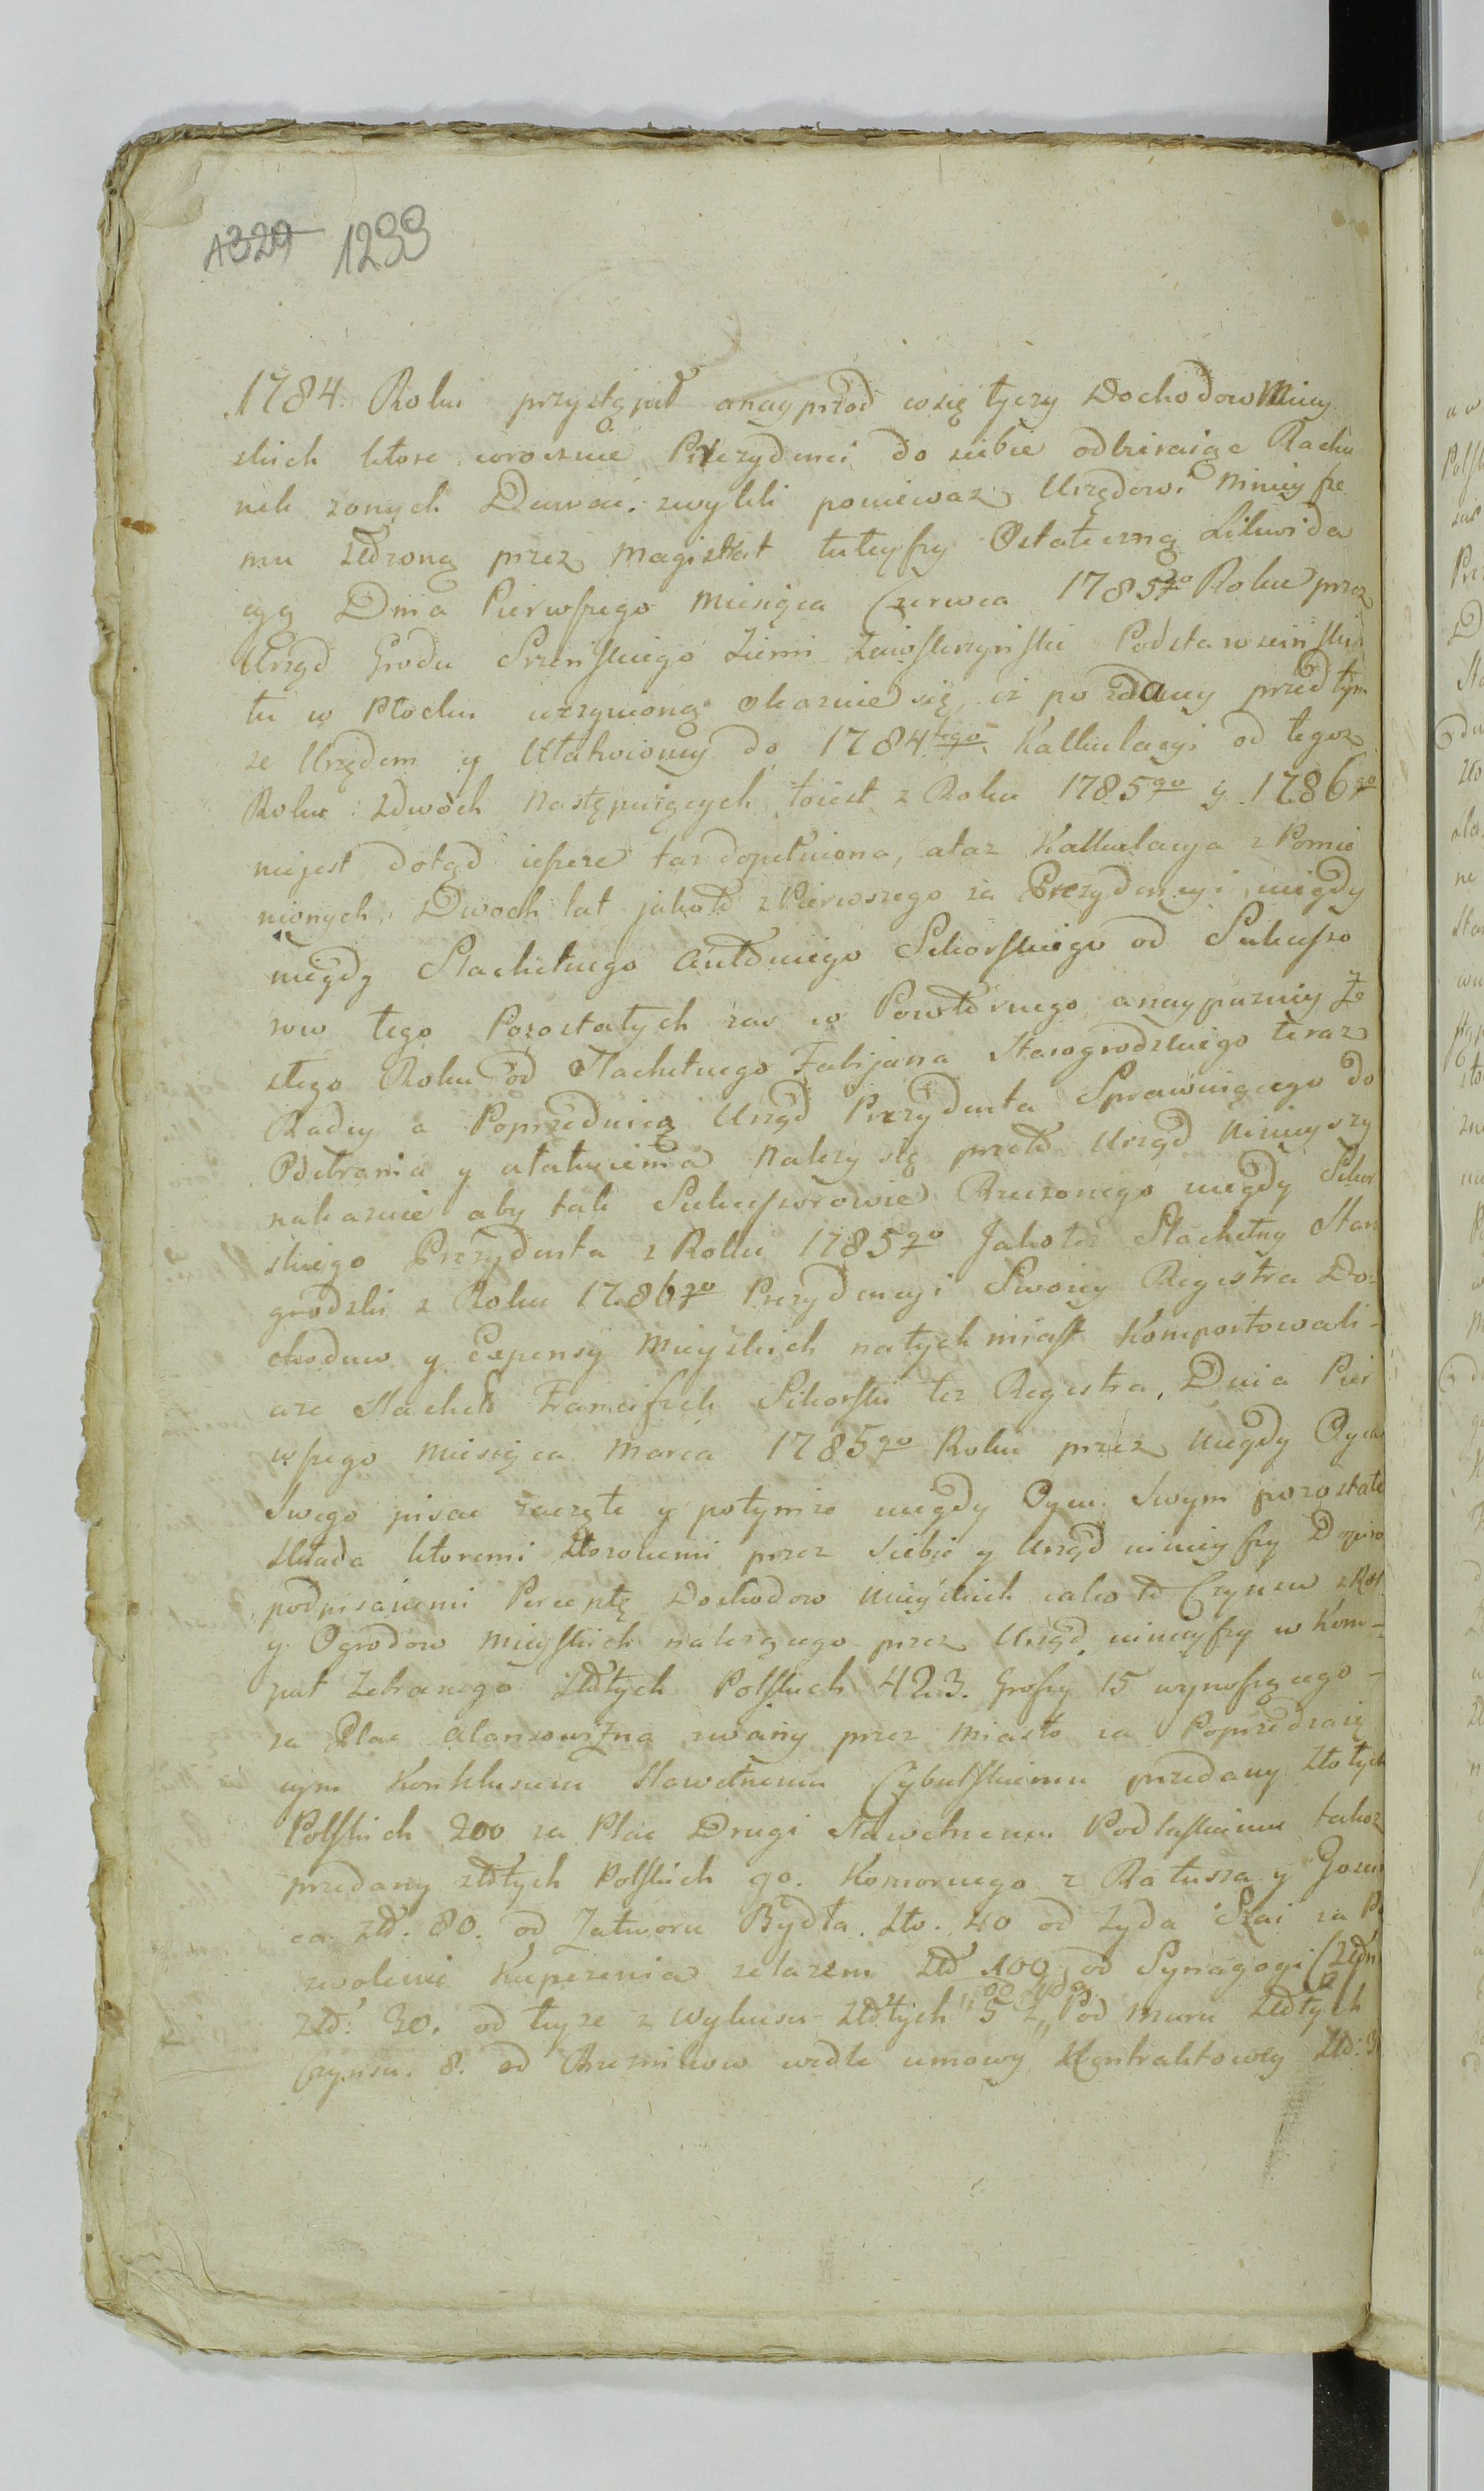 A329 1299
1784. Roku przystąpił anayprzod cosię tyczy Dochodow Miey
skich ktore corocznie Prezydenci do siebie odbieraiąc Rachu
nek zonych Dawać zwykli poniewaz Urzędowi ninieysze
mu złozoną przez Magistrat tuteyszy Ostateczną Likwida
cyą Dnia Pierwszego Miesiąca Czerwca 1785go Roku przez
Urząd Grodu Srzeńskiego Ziemi Zawskrzyńskiey Podstarościński
tu w Płocku uczynioną okazuie się, iż po zdaney przed tym
ze Urzędem y Ułatwioney do 1784tego Kalkulacyi od tegoz
Roku z dwóch następuiących toiest z Roku 1785go y 1786go
niejest dotąd ieszcze taz dopełniona, ataz Kalkulacya z Pomie
nionych Dwoch lat jakoto z Pierwszego za Prezydencyi niegdy
niegdy Slachetnego Antoniego Sikorskiego od Sukcesso
row tego Pozostałych zas w Powtórnego anaypuzniey Ze
szłego Roku od Slachetnego Fabijana Starogrodzkiego teraz
Radcy a Poprzedniczo Urząd Prezydenta Sprawuiącego do
Odebrania y ułatwienia nalezy się przeto Urząd ninieyszy
nakazuie aby tak Sukcessorowie Rzeczonego niegdy Sikor
skiego Prezydenta z Roku 1785go Jakotez Slachetny Staro
grodzki z Roku 1786go Prezydencyi Swoiey Regestra Do-
choduw y Expensy Mieyskich natychmiast Komportowali-
aze Slachet: Franciszek Sikorski tez Regestra, Dnia Pier
wszego Miesiąca Marca 1785go Roku przez niegdy Oyca
Swego pisac zaczęte y potymze niegdy Oycu Swym pozostałe
składa ktoremi złozonemi przez siebie y Urząd ninieyszy Dopiro
podpisanemi Perceptę Dochodow Mieyskich iako to Czynszu z Rol
y Ogrodow Mieyskich nalezącego przez Urząd ninieyszy w Kom-
put Zebranego złotych Polskich 423. Groszy 15 wynoszącego-
za Plac Alanowizna zwany przez Miasto za Poprzedzaią
cym Konklusum Sławetnemu Cybulskiemu przedany Złotych
Polskich 200 za Plac Drugi Sławetnemu Podlaskiemu takoz
przedany złotych Polskich 90. Komornego z Ratusza y Gosciń
ca zło. 80. od Zatworu Bydła. Zło. 40 od Zyda Szai za Po
zwolenie Kupczenia zelazem Zło 100 od Synagogi
zło: 30. od teyze z Wykusu złotych 52 od muru Złotych
Czynszu. 8. od Rzeznikow wedle umowy Kontraktowey Zło: